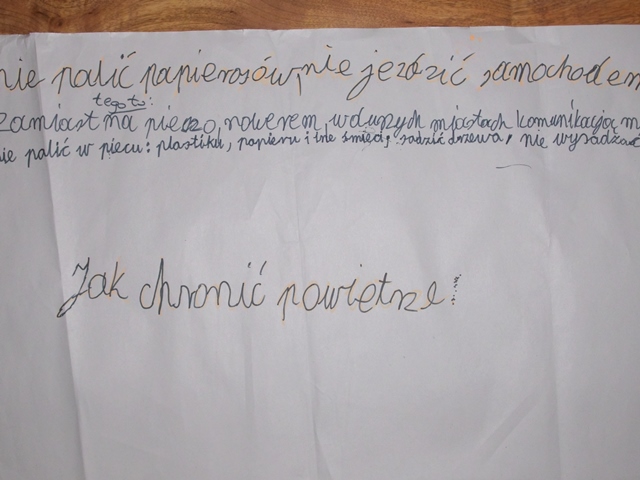 nie palić papierosów, nie jeździć samochodem
tego tu:
zamiast na pieszo, rowerem, w dużych miastach komunikacją m
nie palić w piecu: plastiku, papieru i ine śmieci, sadzić drzewa, nie wysadzać
Jak chronić powietrze: